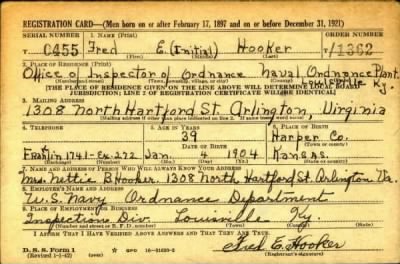 REGISTRATION CARD—(Men born on or after February 17, 1897 and on or before December 31, 1921)
SERIAL NUMBER 1. NAME (Print) ORDER NUMBER
T 0455 Fred E. (Initial) Hooker T 1362
(First) (Middle) (Last)
2. PLACE OF RESIDENCE (Print)
Office of Inspector of Ordnance Naval Ordnance Plant
Louisville Ky.
(Number and street) (Town, township, village, or city) (County) (State)
[THE PLACE OF RESIDENCE GIVEN ON THE LINE ABOVE WILL DETERMINE LOCAL BOARD
JURISDICTION; LINE 2 OF REGISTRATION CERTIFICATE WILL BE IDENTICAL]
3. MAILING ADDRESS
1308 North Hartford St. Arlington, Virginia
[Mailing address if other than place indicated on line 2. If same insert word same]
4. TELEPHONE 5. AGE IN YEARS 6. PLACE OF BIRTH
39 Harper Co.
DATE OF BIRTH (Town or county)
1741-Ex-272 Jan. 4 1904 Kansas.
(Exchange) (Number) (Mo.) (Day) (Yr.) (State or country)
7. NAME AND ADDRESS OF PERSON WHO WILL ALWAYS KNOW YOUR ADDRESS
Mrs. Nettie B. Hooker, 1308 North Hartford St. Arlington Va.
8. EMPLOYER'S NAME AND ADDRESS
U.S. Navy Ordnance Department
9. PLACE OF EMPLOYMENT OR BUSINESS
Inspections Div. Louisville Ky.
(Number and street or R. F. D. number) (Town) (County) (State)
I AFFIRM THAT I HAVE VERIFIED ABOVE ANSWERS AND THAT THEY ARE TRUE.
D. S. S. Form 1 Fred E. Hooker
(Revised 1-1-42) (over) GPO 16-21630-2 (Registrant's signature)